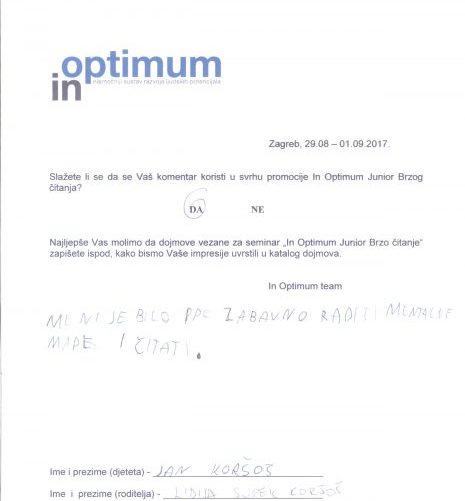 in optimum
najmoćniji sustav razvoja ljudskih potencijala
Zagreb, 29.08 – 01.09.2017.
Slažete li se da se Vaš komentar koristi u svrhu promocije In Optimum Junior Brzog
čitanja?
DA NE
Najljepše Vas molimo da dojmove vezane za seminar „In Optimum Junior Brzo čitanje“
zapišete ispod, kako bismo Vaše impresije uvrstili u katalog dojmova.
In Optimum team
MENI JE BILO ZABAVNO RADITI MENTALNE
MAPE I ČITATI.
Ime i prezime (djeteta) - JAN KORŠOŠ
Ime i prezime (roditelja) - LIDIJA KORŠOŠ